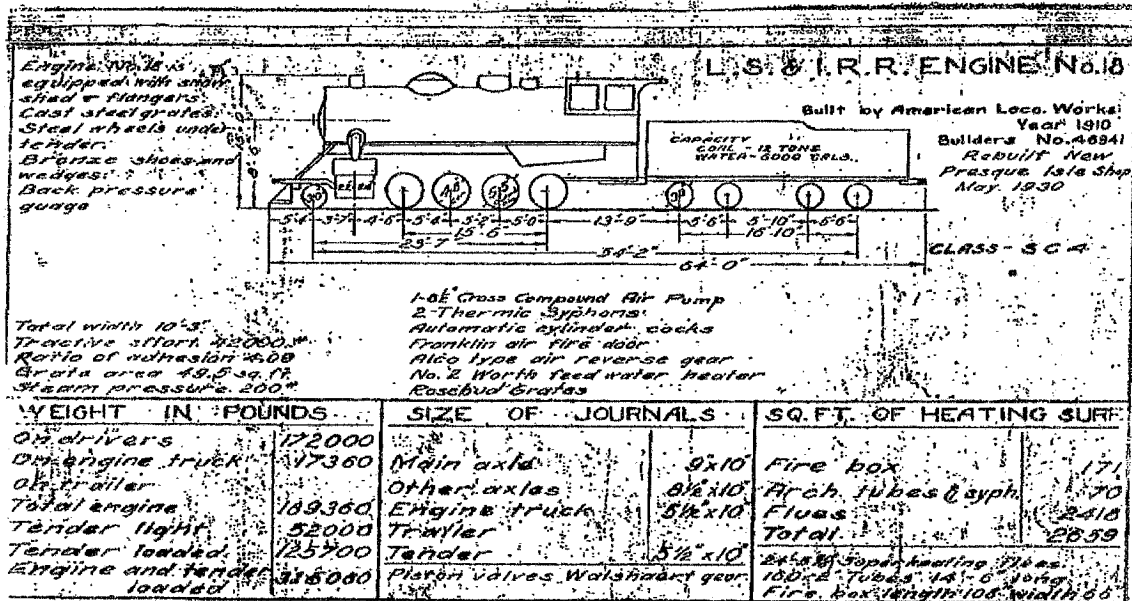 L.S. & I.R.R. ENGINE No.18
Engine No.18 is
equipped with snow
shed & flangers
Cast steel grates.
Steel wheels under
tender.
Bronze shoes and
wedges.
Back pressure
guage
Built by American Loco. Works
Year 1910
Builders No.46941
Rebuilt New
Presque Isle Shop
May. 1930
CAPACITY
COAL - 12 TONS
WATER - 6000 GALS.
5'-4" 3'-7" 4'-6" 5'-4" 5'-2" 5'-0" 13'-9" 5'-6" 5'-10" 5'-6"
15'-6" 16'-10"
23'-7" 54'-2"
64'-0"
CLASS - SC 4
Total width 10'-3"
Tractive effort 42000#
Ratio of adhesion 4.09
Grate area 49.5 sq.ft.
Steam pressure 200#
1-8½" Cross Compound Air Pump
2-Thermic Syphons
Automatic cylinder cocks
Franklin air fire door
Alco type air reverse gear
No. 2 Worth feed water heater
Rosebud Grates
WEIGHT IN POUNDS
On drivers 172000
On engine truck 17360
On trailer
Total engine 189360
Tender light 52000
Tender loaded 125700
Engine and tender
loaded
SIZE OF JOURNALS
Main axle 9"x10"
Other axles 8½"x10"
Engine truck 5½"x10"
Trailer
Tender 5½"x10"
Piston valves Walshaart gear
SQ. FT. OF HEATING SURF
Fire box 171
Arch tubes & syph. 70
Flues 2418
Total 2659
Superheating Flues
Tubes 14'-6" long
Fire box length 108 width 66